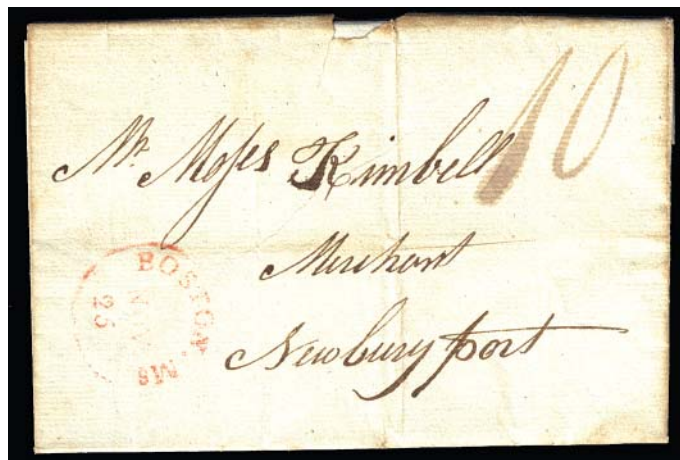 10
Mr. Moſes Kimbell
Merchant
Newburyport
BOSTON. Ms
25